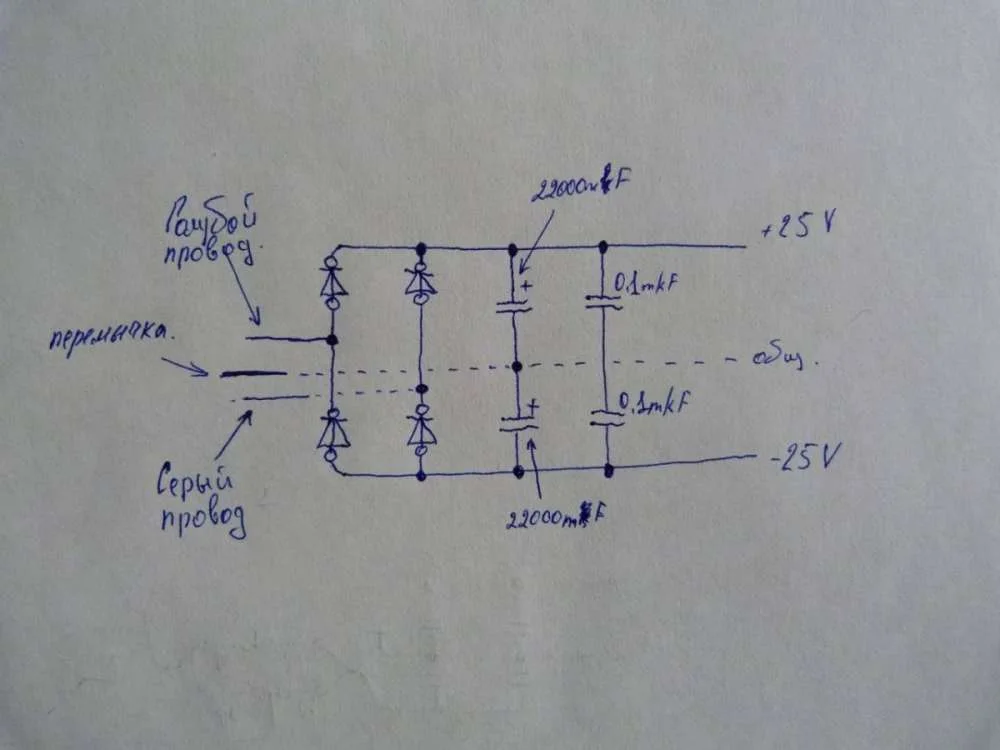 22000mkF
Голубой
провод.
+25 V
+
0.1mkF
перемычка.
общ.
+
0.1mkF
-25V
Серый
провод
22000mkF